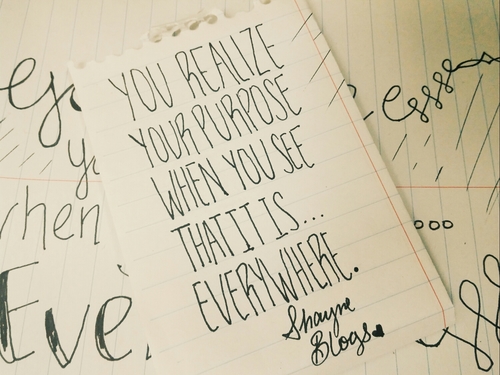 YOU REALIZE
YOUR PURPOSE
WHEN YOU SEE
THAT IT IS...
EVERYWHERE.
Shayne
Blogs